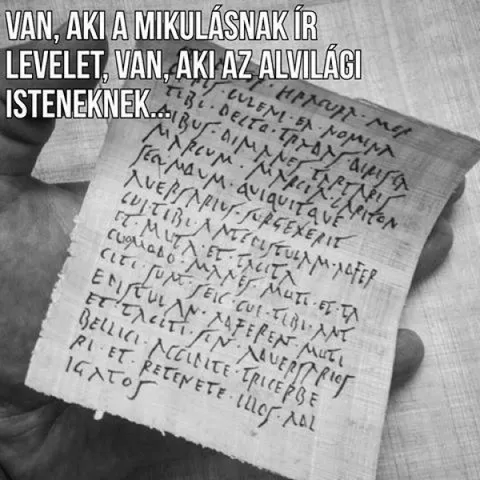 VAN, AKI A MIKULÁSNAK ÍR
LEVELET, VAN, AKI AZ ALVILÁGI
ISTENEKNEK...
MER
CULENI · EA · NOMINA
TIBI · DELCTO · TRADAS DIRIS CA
NIBUS · DIMANES TARTARIS
MARCUM · MARCIA · CAPITON
SECUNDUM · QUIQUIT QUE
AUERSARIUS · SURGEXERIT
CUI · TIBI · ANTEPISTULAM · ADFER
ET · MUTA · ET · TACITA
CUOMODO · MANES · MUTI · ET · TA
CITI · SUNT · SEIC · CUI · TIBI · ANT
EPISTULAM · ADFEREN · MUTI
ET · TACITI · SIN · ADUERSARIOS
BELLICI · ACCIPITE · TRICERBE
RI · ET · RETENETE · ILLOS · ADL
IGATOS